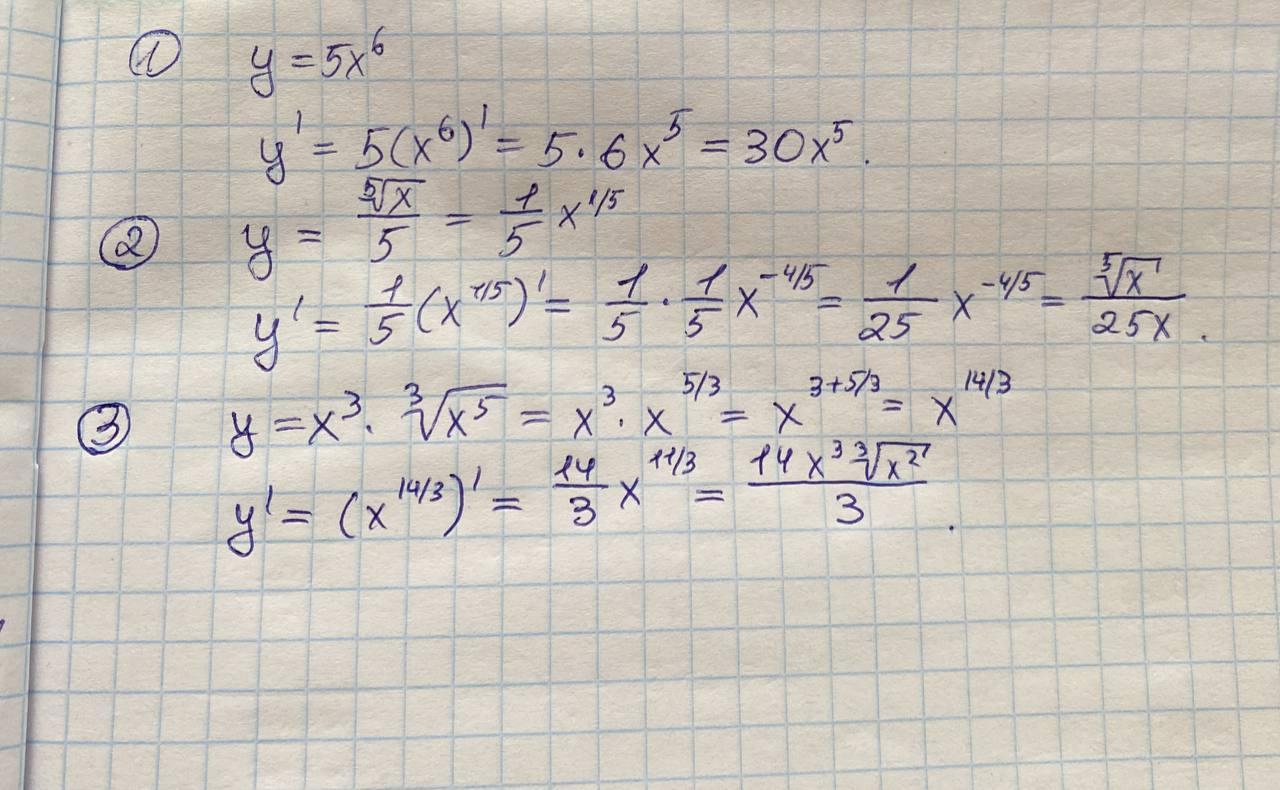 ① y = 5x⁶
y' = 5(x⁶)' = 5 · 6x⁵ = 30x⁵.
② y = ⁵√x / 5 = 1/5 x^(1/5)
y' = 1/5 (x^(1/5))' = 1/5 · 1/5 x^(-4/5) = 1/25 x^(-4/5) = ⁵√x / 25x.
③ y = x³ · ³√(x⁵) = x³ · x^(5/3) = x^(3+5/3) = x^(14/3)
y' = (x^(14/3))' = 14/3 x^(11/3) = 14x³ ³√(x²) / 3.